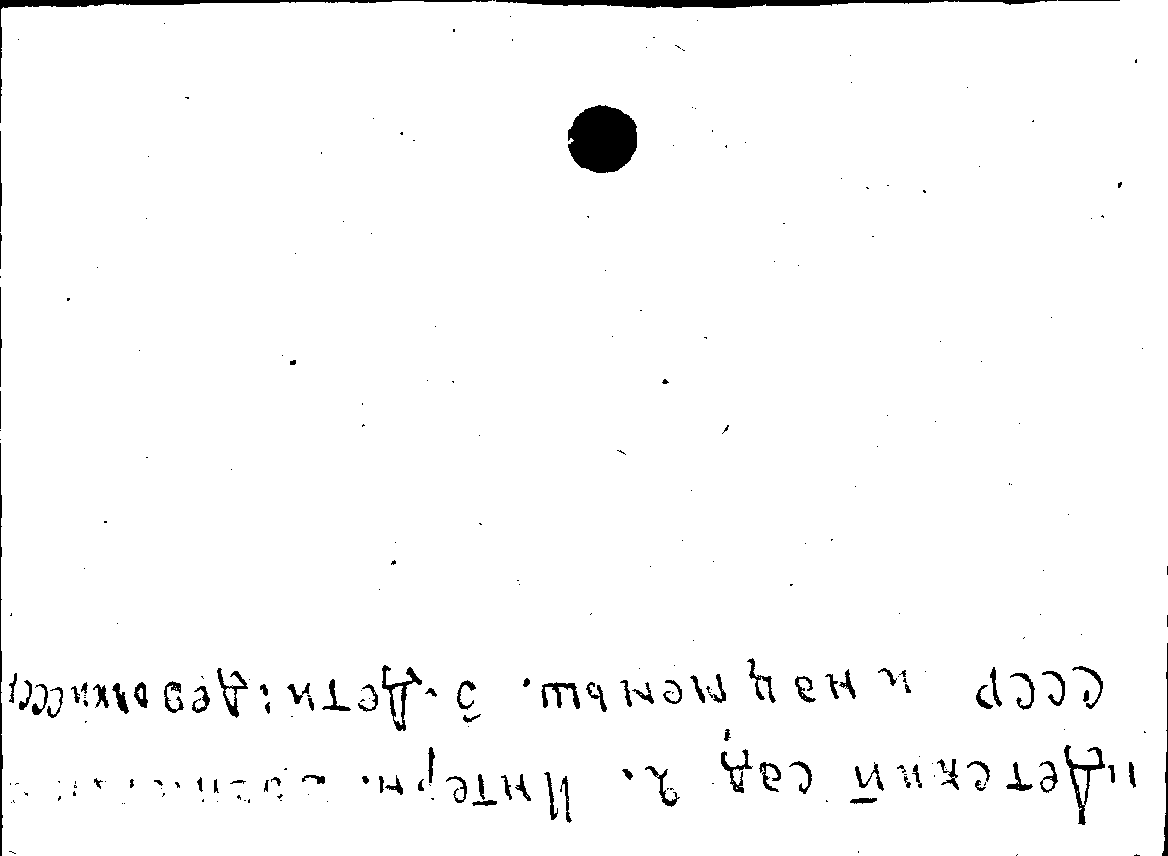 "Детский сад 2. Интерн.
СССР и нацменьш. 3. Дети: Девочки ссср